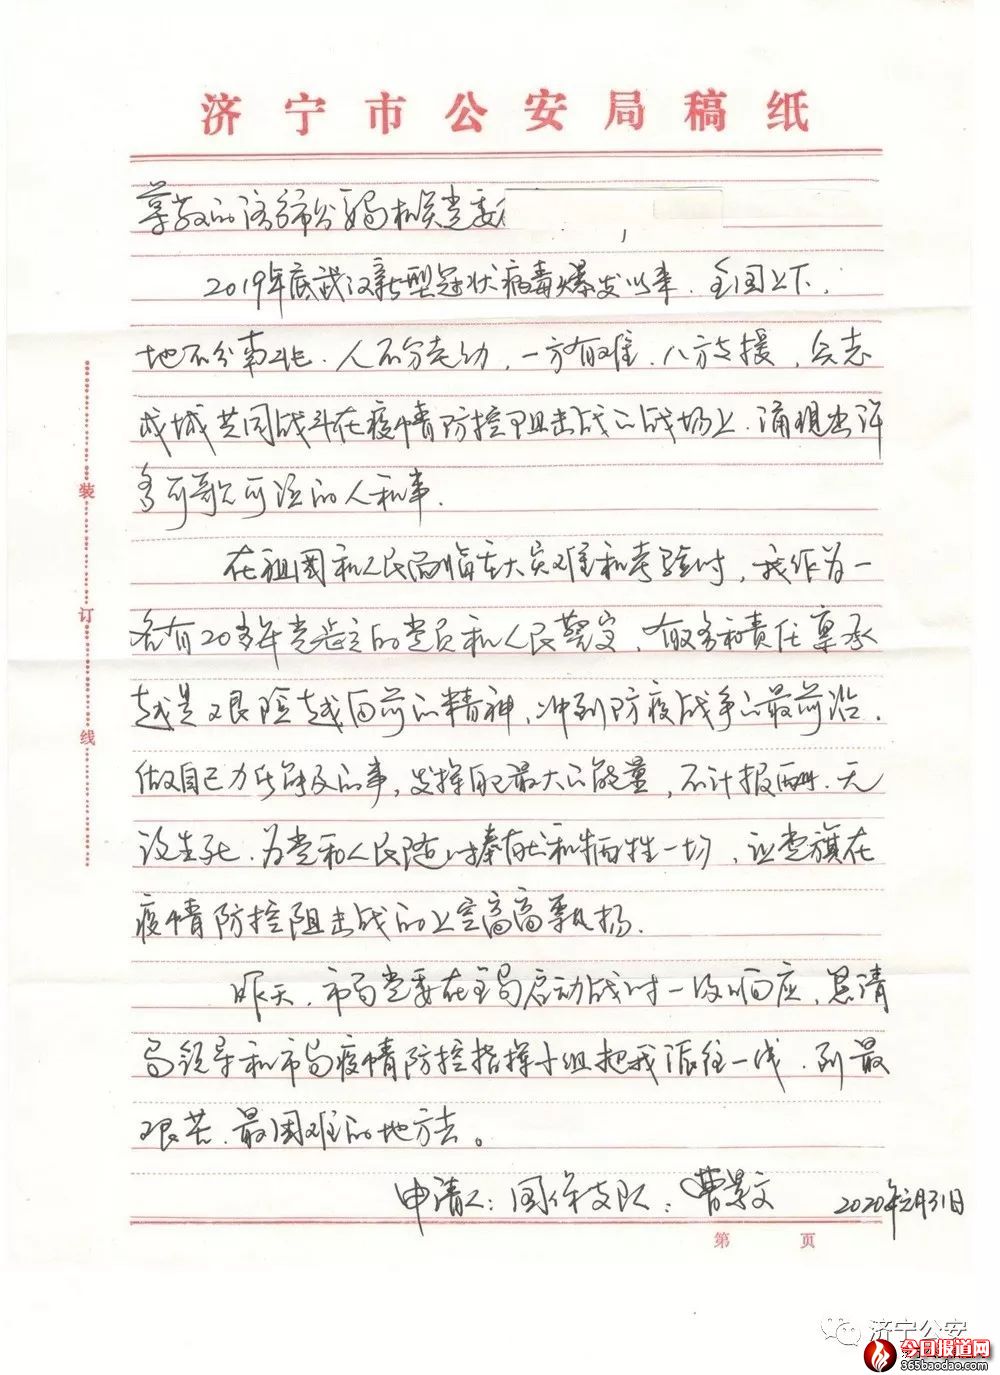 济宁市公安局稿纸
尊敬的济宁市公安局机关党委
,
2019年底武汉新型冠状病毒爆发以来,全国上下,
地不分南北、人不分老幼,一方有难、八方支援,众志
成城共同战斗在疫情防控阻击战的战场上,涌现出许
多可歌可泣的人和事.
在祖国和人民面临重大灾难和考验时,我作为一
名有20多年党龄的党员和人民警察,有义务和责任秉承
越是艰险越向前的精神,冲到防疫战争的最前沿,
做自己力所能及的事,发挥自己最大的能量,不计报酬、无
论生死、为党和人民随时奉献和牺牲一切,让党旗在
疫情防控阻击战的上空高高飘扬.
昨天,市局党委在全局启动战时一级响应,恳请
局领导和市局疫情防控指挥小组把我派往一线,到最
艰苦、最困难的地方去。
申请人:国保支队:曹景文 2020年元月31日
第 页
装
订
线
济宁公安
今日报道网
365baodao.com